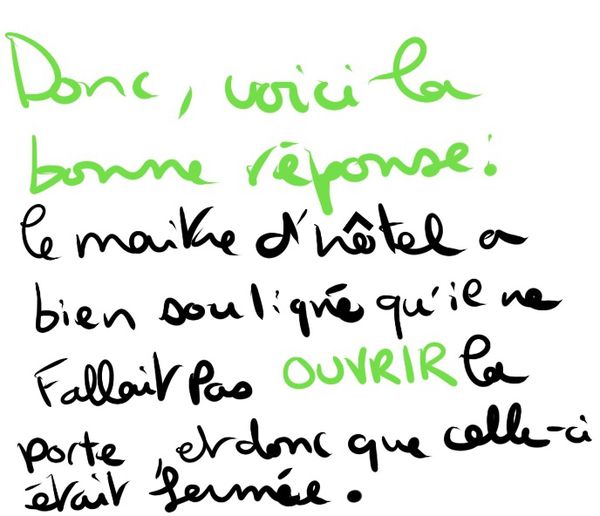 Donc, voici la
bonne réponse:
le maitre d'hôtel a
bien souligné qu'il ne
Fallait pas OUVRIR la
porte, et donc que celle-ci
était fermée.